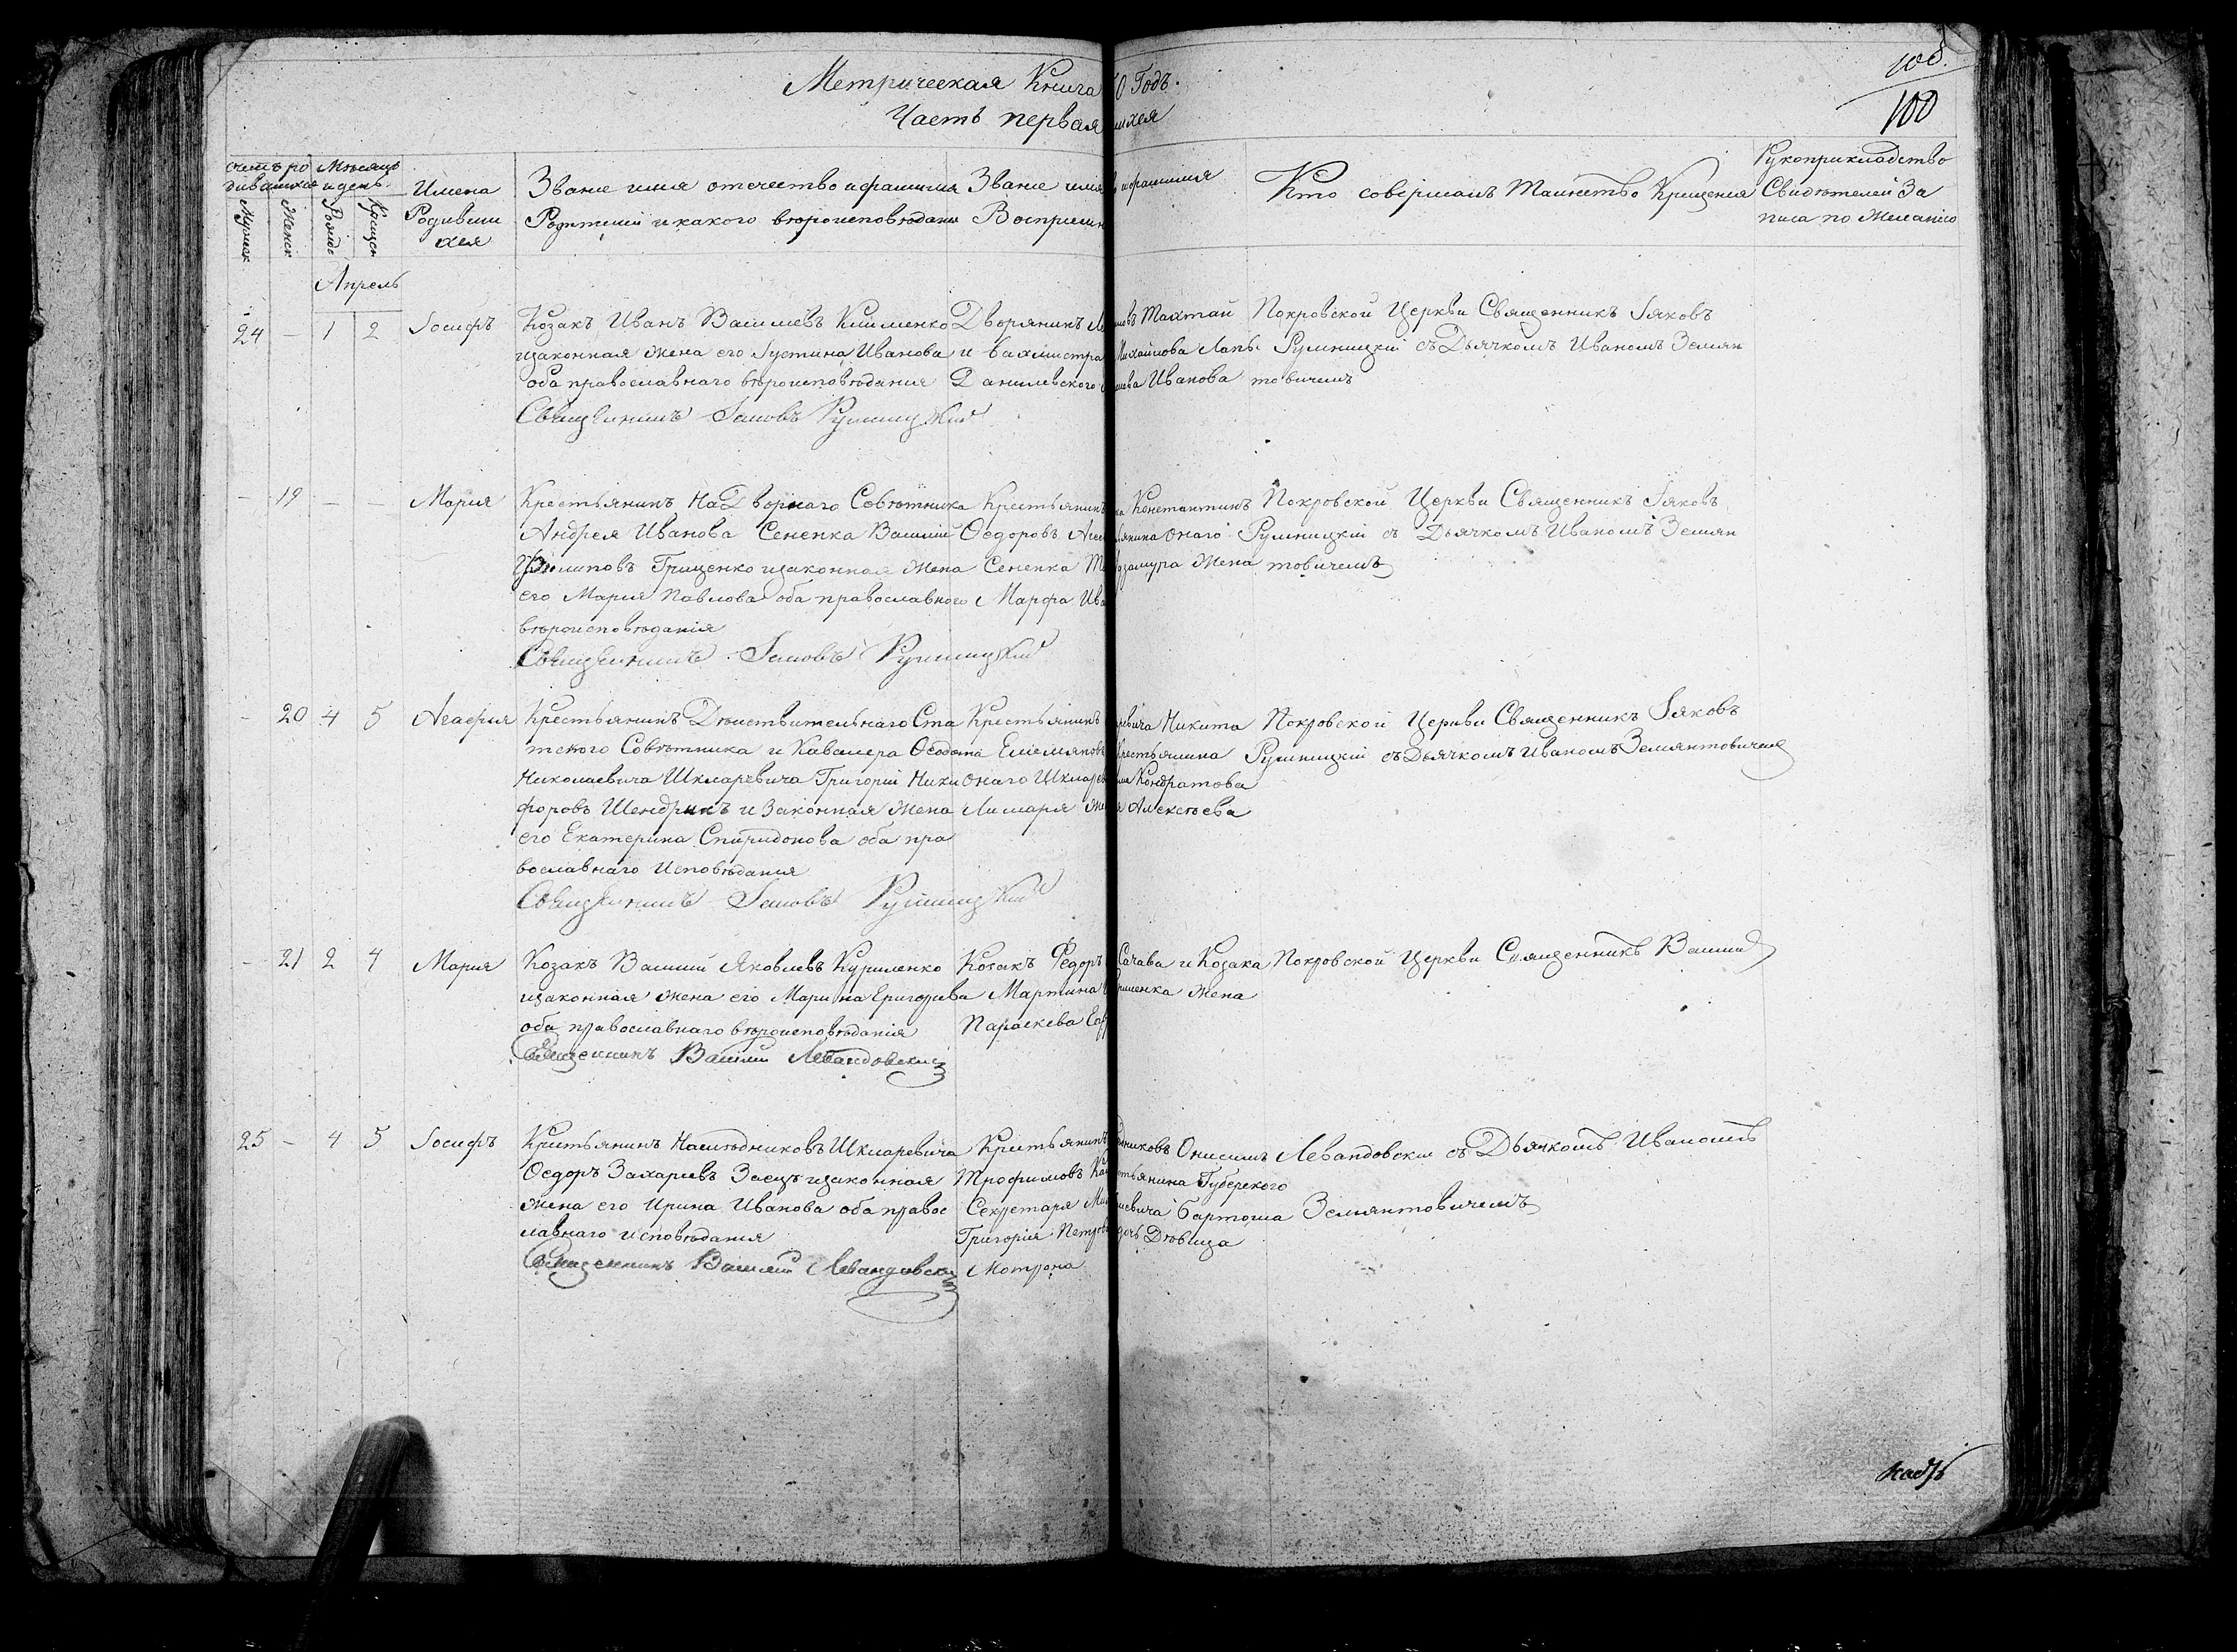 Метрическая Книга 0 Годъ.
Часть первая шхся
108.
100
Счетъ ро
дившихся
Мужск
Женск
Мѣсяцъ
и день.
Рожде
Крещен
Имена
Родивши
хся
Званіе имя отечество и фамилия
Родителей и какого вѣроисповѣдания
Званіе имя и фамилия
Восприемн
Кто совершалъ Таинство Крещения
Рукоприкладство
Свидѣтелей За
писа по Желанію
Апрель
24 – 1 2 Іосифъ
Козакъ Иванъ Васильевъ Клименко
изаконная жена его Іустина Иванова
оба православнаго вѣроисповѣдания
Священникъ Іаковъ Румницкій
Дворянинъ Тахтай
и вахмистра Михайлова
Данилевского Иванова
Покровской Церкви Священникъ Іяковъ
Румницкій съ Дьячкомъ Иваномъ Земян
товичемъ
– 19 – – Мария
Крестьянинъ Надворнаго Совѣтника
Андрея Иванова Сененка Василій
Филиповъ Гриценко изаконная жена
его Мария Павлова оба православного
вѣроисповѣданія
Священникъ Іаковъ Румницкій
Крестьянинъ Константинъ
Ѳедоровъ онаго
Сененка жена
Марфа
Покровской Церкви Священникъ Іяковъ
Румницкій съ Дьячкомъ Иваномъ Земян
товичемъ
– 20 4 5 Агафия
Крестьянинъ Дѣйствительнаго Ста
тского Совѣтника и Кавалера Ѳеодота
Николаевича Шкляревича Григорій Ники
форовъ Шендрикъ и Законная жена
его Екатерина Спиридонова оба пра
вославнаго Исповѣдания
Священникъ Іаковъ Румницкій
Крестьянинъ Никита
Емельяновъ крестьянина
онаго Кондратова
Лимаря Алексѣева
Покровской Церкви Священникъ Іяковъ
Румницкій съ Дьячкомъ Иваномъ Земянтовичемъ
– 21 2 4 Мария
Козакъ Василій Яковлевъ Куриленко
изаконная жена его Марина Григорьева
оба православнаго вѣроисповѣданія
Священникъ Василій Левандовскій
Козакъ Федоръ Сачава и Козака
Мартина жена
Параскева
Покровской Церкви Священникъ Василій
25 – 4 5 Іосифъ
Крестьянинъ Наслѣдниковъ Шкляревича
Ѳедоръ Захарьевъ Заецъ изаконная
жена его Ирина Иванова оба правос
лавнаго исповѣдания
Священникъ Василій Левандовскій
Крестьянинъ Онисимъ
Трофимовъ Губерского
Секретаря Бартоша
Григорія Дѣвица
Мотрона
Левандовски съ Дьячкомъ Иваномъ
Земянтовичемъ